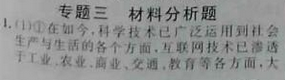 专题三 材料分析题
1.(1)①在如今,科学技术已广泛运用到社会
生产与生活的各个方面,互联网技术已渗透
于工业、农业、商业、交通、教育等各方面,大